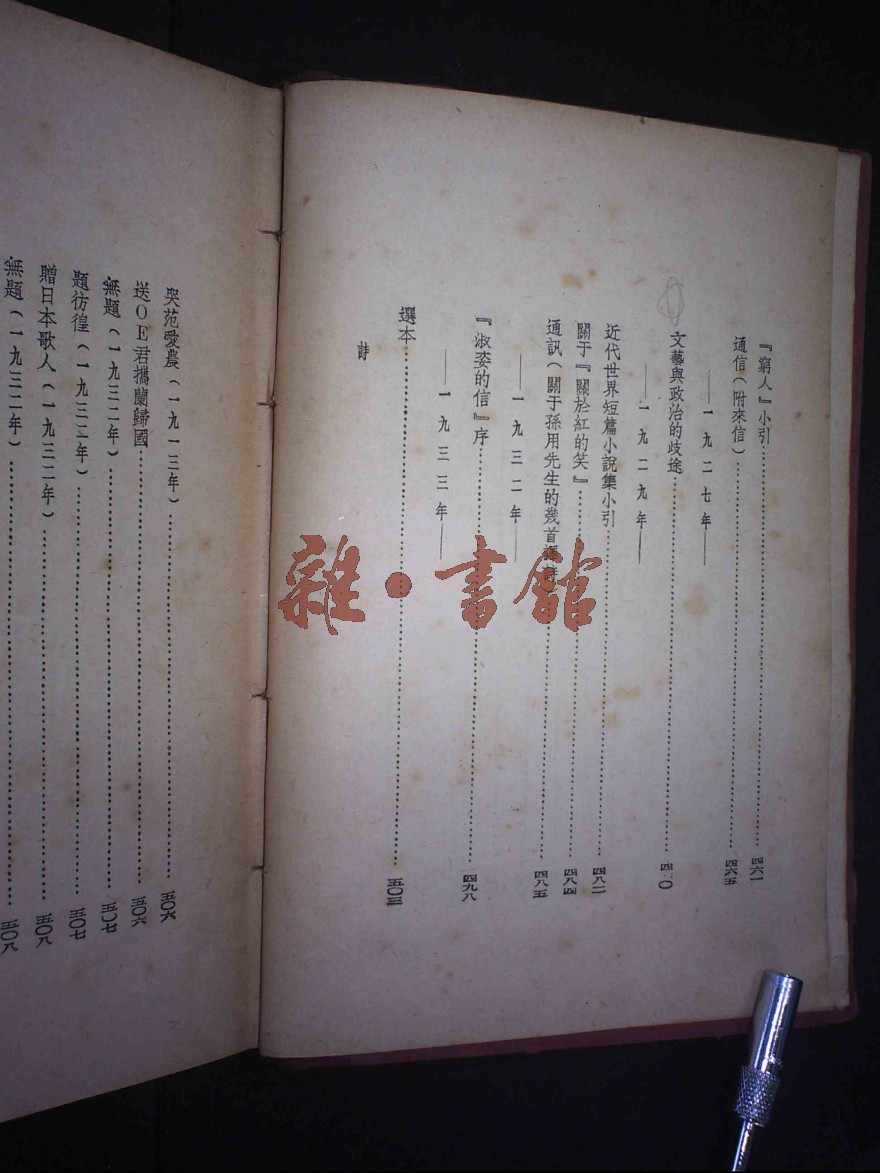 『窮人』小引………四六一
通信(附來信)………四六五
——一九二七年——
文藝與政治的歧途………四 〇
——一九二九年——
近代世界短篇小說集小引………四八二
關于『關於紅的笑』………四八四
通訊(關于孫用先生的幾首譯詩)………四八五
——一九三二年——
『淑姿的信』序………四九八
——一九三三年——
選本………五〇三
詩
哭范愛農(一九一三年)………五〇六
送OE君攜蘭歸國………五〇六
無題(一九三二年)………五〇七
題彷徨(一九三二年)………五〇七
贈日本歌人(一九三二年)………五〇八
無題(一九三二年)………五〇八
雜·書舘